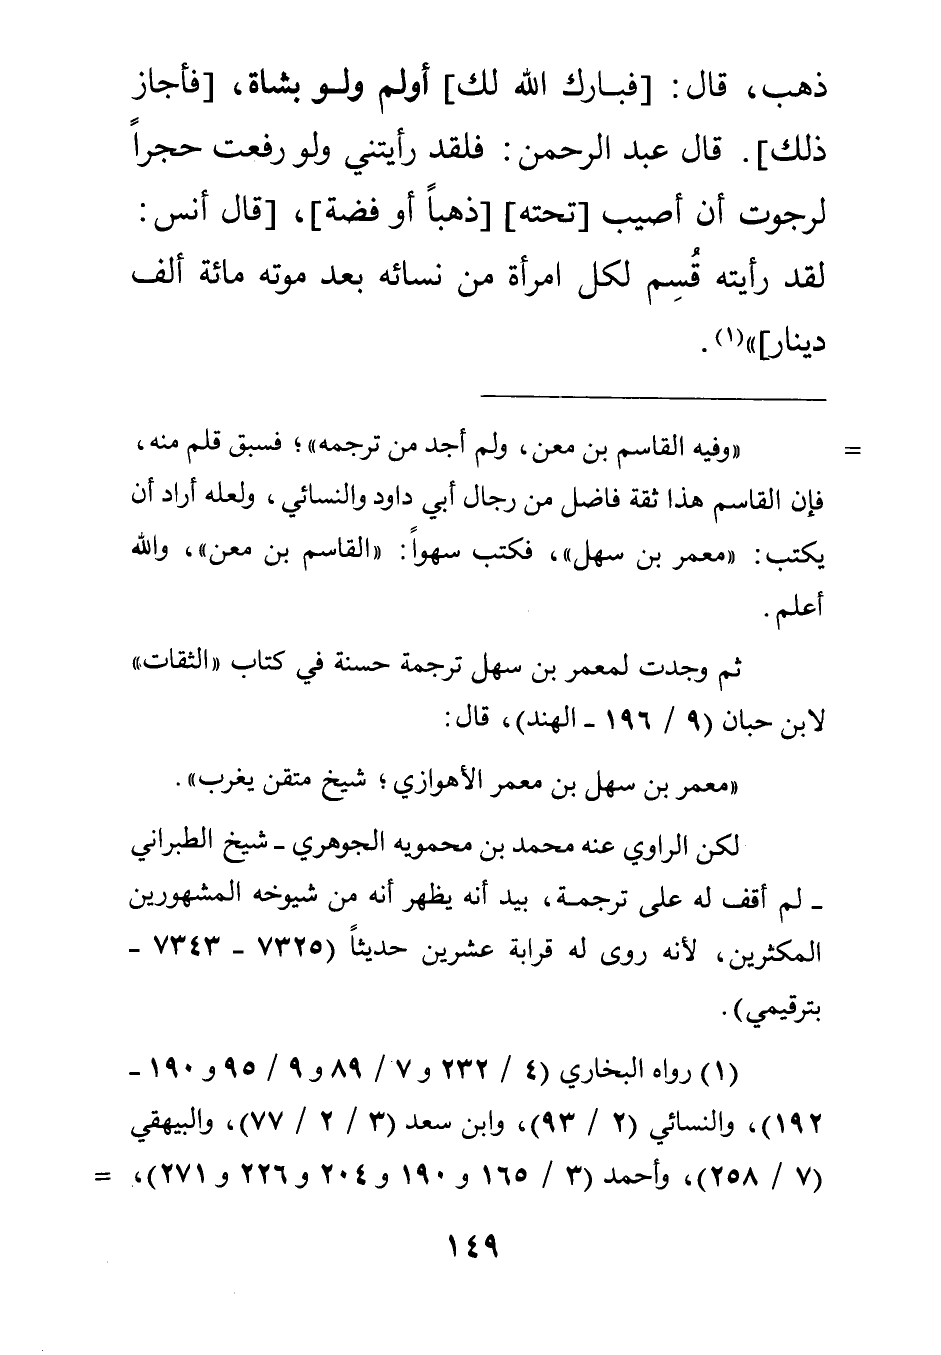 ذهب، قال: [فبارك الله لك] أولم ولو بشاة، [فأجاز
ذلك]. قال عبد الرحمن: فلقد رأيتني ولو رفعت حجراً
لرجوت أن أصيب [تحته] [ذهباً أو فضة]، [قال أنس:
لقد رأيته قُسِم لكل امرأة من نسائه بعد موته مائة ألف
دينار]»(١).
= «وفيه القاسم بن معن، ولم أجد من ترجمه»؛ فسبق قلم منه،
فإن القاسم هذا ثقة فاضل من رجال أبي داود والنسائي، ولعله أراد أن
يكتب: «معمر بن سهل»، فكتب سهواً: «القاسم بن معن»، والله
أعلم.
ثم وجدت لمعمر بن سهل ترجمة حسنة في كتاب «الثقات»
لابن حبان (٩ / ١٩٦ - الهند)، قال:
«معمر بن سهل بن معمر الأهوازي؛ شيخ متقن يغرب».
لكن الراوي عنه محمد بن محمويه الجوهري - شيخ الطبراني
- لم أقف له على ترجمة، بيد أنه يظهر أنه من شيوخه المشهورين
المكثرين، لأنه روى له قرابة عشرين حديثاً (٧٣٢٥ - ٧٣٤٣ -
بترقيمي).
(١) رواه البخاري (٤ / ٢٣٢ و ٧ / ٨٩ و ٩ / ٩٥ و ١٩٠ -
١٩٢)، والنسائي (٢ / ٩٣)، وابن سعد (٣ / ٢ / ٧٧)، والبيهقي
(٧ / ٢٥٨)، وأحمد (٣ / ١٦٥ و ١٩٠ و ٢٠٤ و ٢٢٦ و ٢٧١)، =
١٤٩